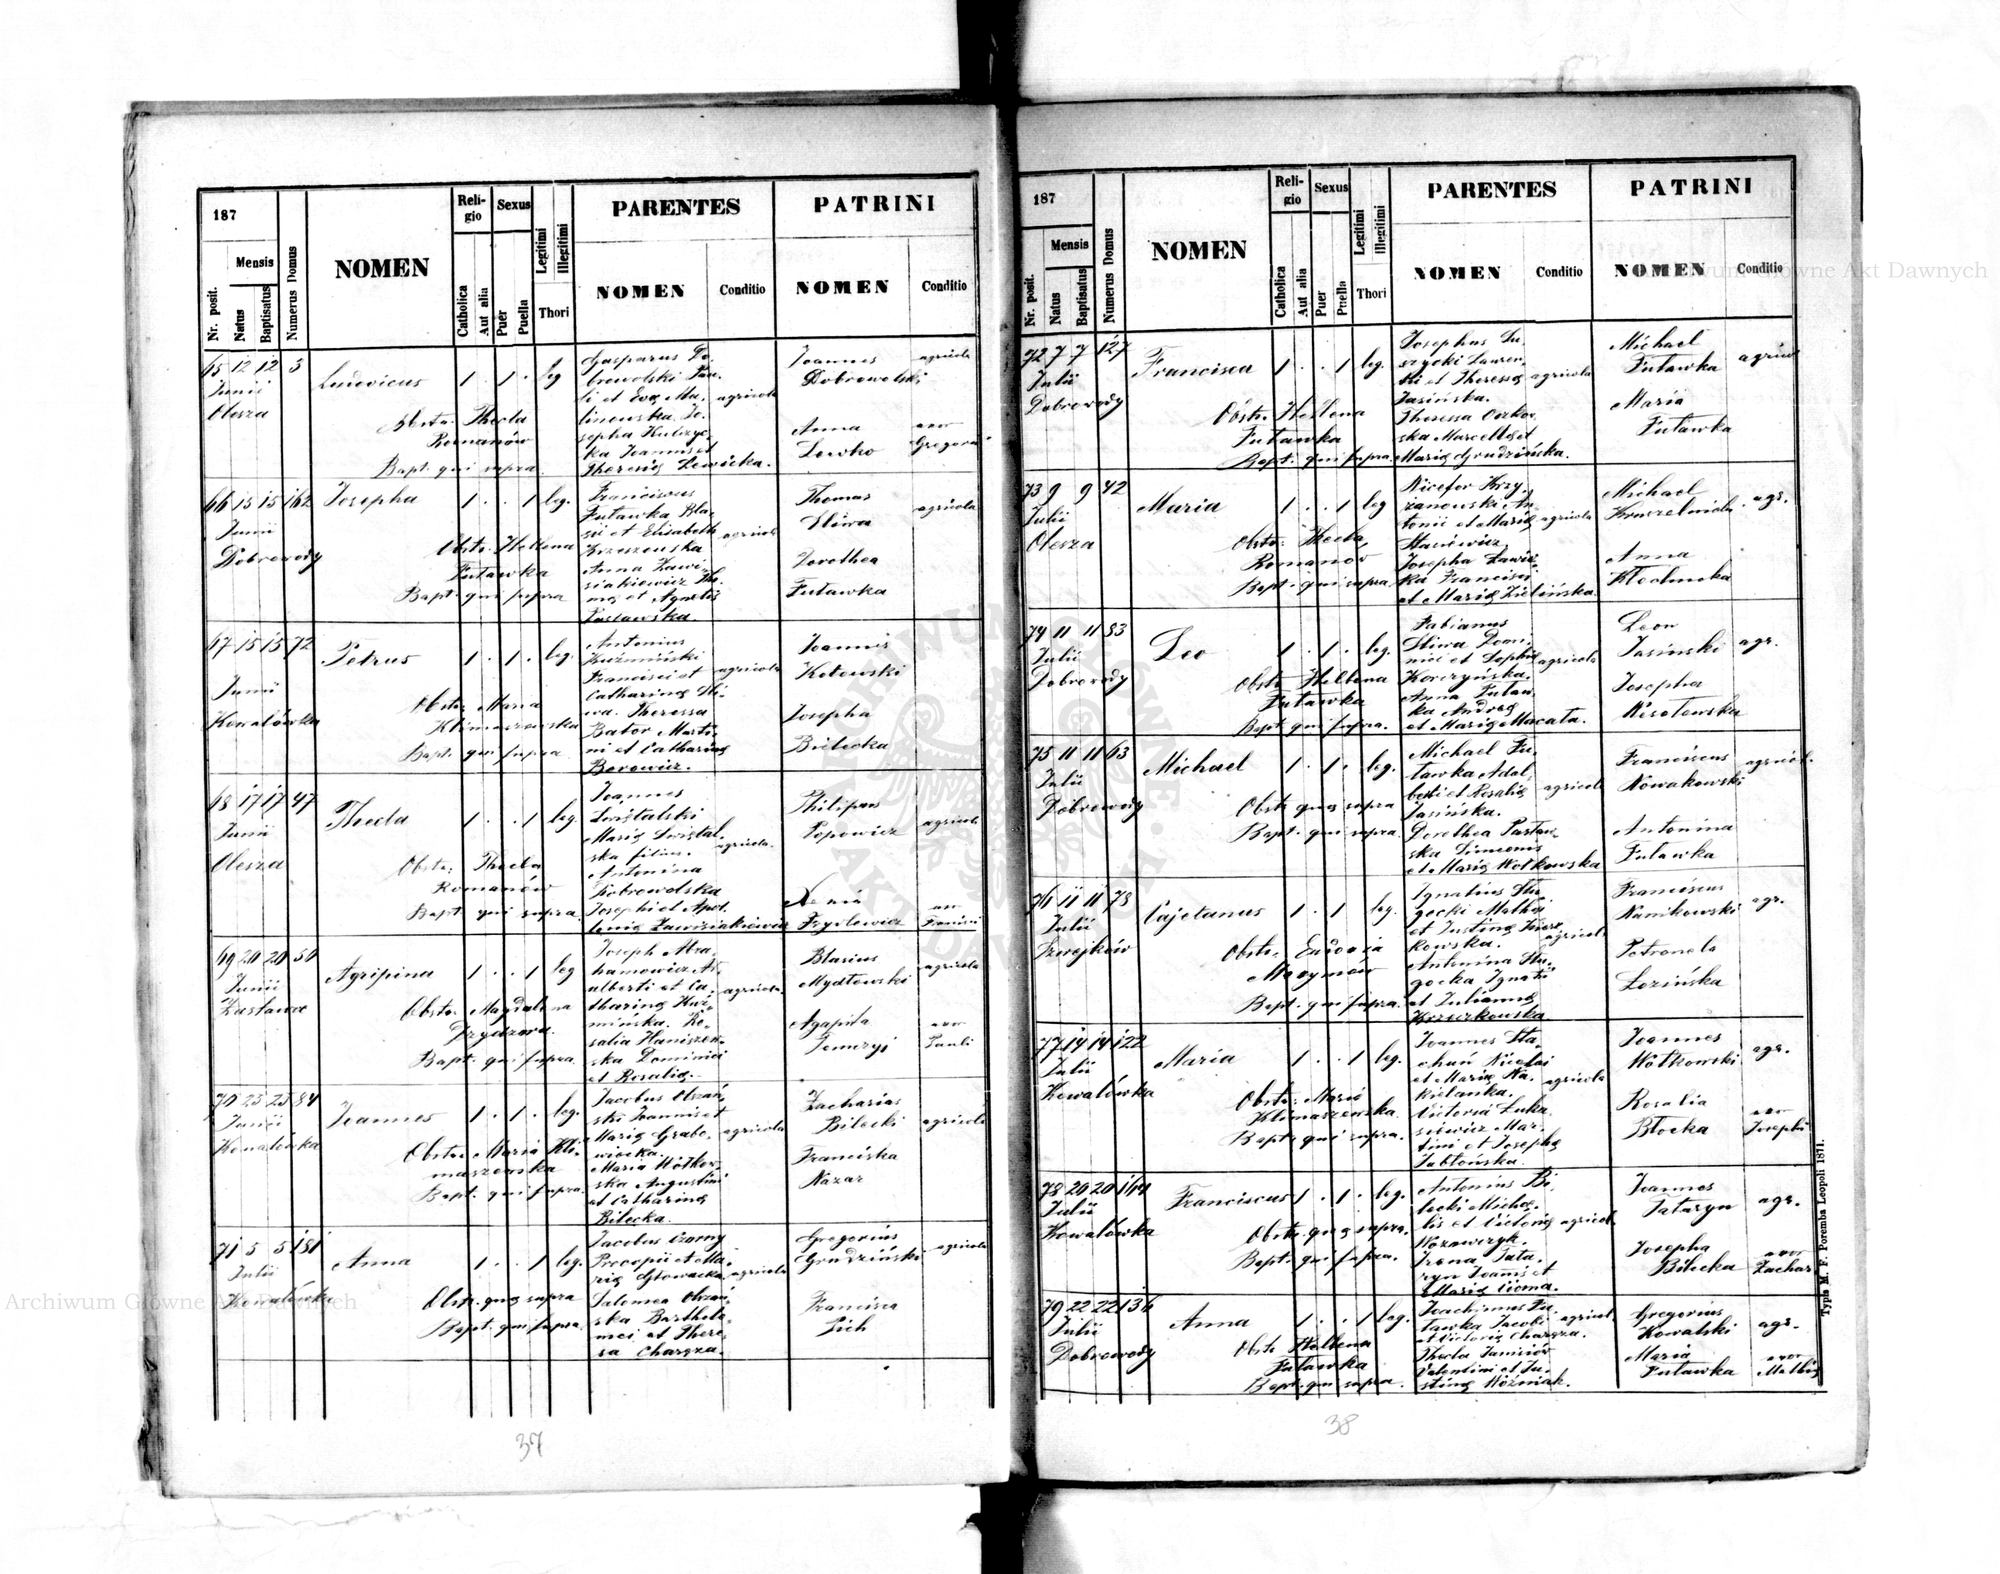 187
Mensis
Nr. posit.
Natus
Baptisatus
Numerus Domus
NOMEN
Religio
Catholica
Aut alia
Sexus
Puer
Puella
Legitimi
Illegitimi
Thori
PARENTES
NOMEN
Conditio
PATRINI
NOMEN
Conditio
65 12 12 3
Junii
Olesza
Ludovicus
1 . 1 . leg
Obstr. Thecla
Romanów
Bapt. qui supra
Gasparus Do-
browolski Pau-
li et Eva Ma-
linowska. Jo-
sepha Kulczyc-
ka Joannis et
Theresia Lewicka.
agricola
Joannes
Dobrowolski
Anna
Lewko
agricola
uxor
Gregorii
66 15 15 162
Junii
Dobrowody
Josepha
1 . . 1 leg.
Obstr. Hellena
Futawka
Bapt. qui supra
Franciscus
Futawka Bla-
sii et Elisabeth
Brzeszowska
Anna Zawi-
siakiewicz Tho-
ma et Agnetis
Pasławska
agricola
Thomas
Sliwa
Dorothea
Futawka
agricola
67 15 15 72
Junii
Kowalówka
Petrus
1 . 1 . leg.
Obstr. Maria
Klimaszewska
Bapt. qui supra
Antonius
Kuźmiński
Francisci et
Catharina Sli-
wa. Theressa
Bator Marti-
ni et Catharina
Borowicz.
agricola
Joannis
Kotowski
Josepha
Bilecka
68 17 17 47
Junii
Olesza
Thecla
1 . . 1 leg.
Obstr. Thecla
Romanów
Bapt. qui supra
Joannes
Swistalski
Maria Swistal-
ska filius.
Antonina
Dobrowolska
Josephi et Apol-
lonia Zawisiakiewicz
agricola.
Philipus
Popowicz
Xenia
Frydlewicz
agricola
uxor
69 20 20 50
Junii
Zastawce
Agripina
1 . . 1 leg
Obstr. Magdalena
Bapt. qui supra
Joseph Abra-
hamowicz Ad-
alberti et Ca-
tharina Kuź-
mińska. Ro-
salia Haniszew-
ska Dominici
et Rosalia.
agricola.
Blasius
Mydłowski
Agapita
agricola
uxor
Pauli
70 23 23 84
Junii
Kowalówka
Joannes
1 . 1 . leg.
Obstr. Maria Kli-
maszewska
Bapt. qui supra.
Jacobus Olszań-
ski Joannis et
Maria Grabo-
wiecka.
Maria Wótkow-
ska Augustini
et Catharina
Bilecka.
agricola
Zacharias
Bilecki
Franciska
Nazar
agricola
71 5 5 181
Julii
Kowalówka
Anna
1 . . 1 leg.
Obstr. qua supra
Bapt. qui supra.
Jacobus Czorny
Procopii et Ma-
ria Głowacka
Salomea Olszań-
ska Bartholo-
mei et There-
sa Charęza.
agricola
Gregorius
Grudziński
Francisca
Pich
agricola
37
187
Mensis
Nr. posit.
Natus
Baptisatus
Numerus Domus
NOMEN
Religio
Catholica
Aut alia
Sexus
Puer
Puella
Legitimi
Illegitimi
Thori
PARENTES
NOMEN
Conditio
PATRINI
NOMEN
Conditio
72 7 7 127
Julii
Dobrowody
Francisca
1 . . 1 leg.
Obstr. Hellena
Futawka
Bapt. qui supra.
Josephus Su-
szycki Lauren-
tii et Theressa
Jasińska.
Theressa Oczkow-
ska Marcelli et
Maria Grudzińska.
agricola
Michael
Futawka
Maria
Futawka
agricola
73 9 9 42
Julii
Olesza
Maria
1 . . 1 leg
Obstr. Thecla
Romanów
Bapt. qui supra
Nicefor Krzy-
żanowski An-
tonii et Maria
Stasiewicz.
Josepha Lawic-
ka Francisci
et Maria Zielińska.
agricola
Michael
Kruszelnicki
Anna
Kłochnska
agr.
74 11 11 83
Julii
Dobrowody
Leo
1 . 1 . leg.
Obstr. Hellena
Futawka
Bapt. qui supra.
Fabianus
Sliwa Domi-
nici et Sophia
Korczyńska.
Anna Futaw-
ka Andrea
et Maria Macała.
agricola
Leon
Jasinski
Josepha
agr.
75 11 11 63
Julii
Dobrowody
Michael
1 . 1 . leg.
Obstr. qua supra
Bapt. qui supra.
Michael Fu-
tawka Adal-
berti et Rosalia
Jasińska.
Dorothea Pastaw-
ska Simeonis
et Maria Wótkowska
agricola
Franciscus
Nowakowski
Antonina
Futawka
agricol.
76 11 11 78
Julii
Szwejków
Cajetanus
1 . 1 leg.
Obstr. Eudoxia
Maxymów
Bapt. qui supra.
Ignatius Stu-
gocki Mathia
et Justina Krucz-
kowska.
Antonina Stu-
gocka Ignatii
et Julianna
Kruczkowska
agricola
Franciscus
Nanikowski
Petronela
Łozińska
agr.
77 14 14 122
Julii
Kowalówka
Maria
1 . . 1 leg.
Obstr. Maria
Klimaszewska.
Bapt. qui supra.
Joannes Sta-
chuń Nicolai
et Maria Na-
kielanka.
Victoria Luka-
siewicz Mar-
tini et Josepha
Jabłońska.
agricola
Joannes
Wótkowski
Rosalia
Błocka
agr.
uxor
Josephi
78 20 20 164
Julii
Kowalówka
Franciscus
1 . 1 . leg.
Obstr. qua supra.
Bapt. qui supra.
Antonius Bi-
lecki Micha-
lis et Victoria
Irena Tata-
ryn Joannis et
Maria Czorna.
agricol.
Joannes
Tataryn
Josepha
Bilecka
agr.
uxor
Zachar
79 22 22 136
Julii
Dobrowody
Anna
1 . . 1 leg.
Obstr. Hellena
Futawka
Bapt. qui supra.
Joachimus Fu-
tawka Jacobi
et Victoria Charęza.
Thecla Janisiów
Valentini et Ju-
stina Woźniak.
agricol.
Gregorius
Kowalski
Maria
Futawka
agr.
uxor
Mathia
Typis M. F. Poremba Leopoli 1871.
38
Archiwum Główne Akt Dawnych
Archiwum Główne Akt Dawnych
ARCHIWUM GŁÓWNE AKT DAWNYCH